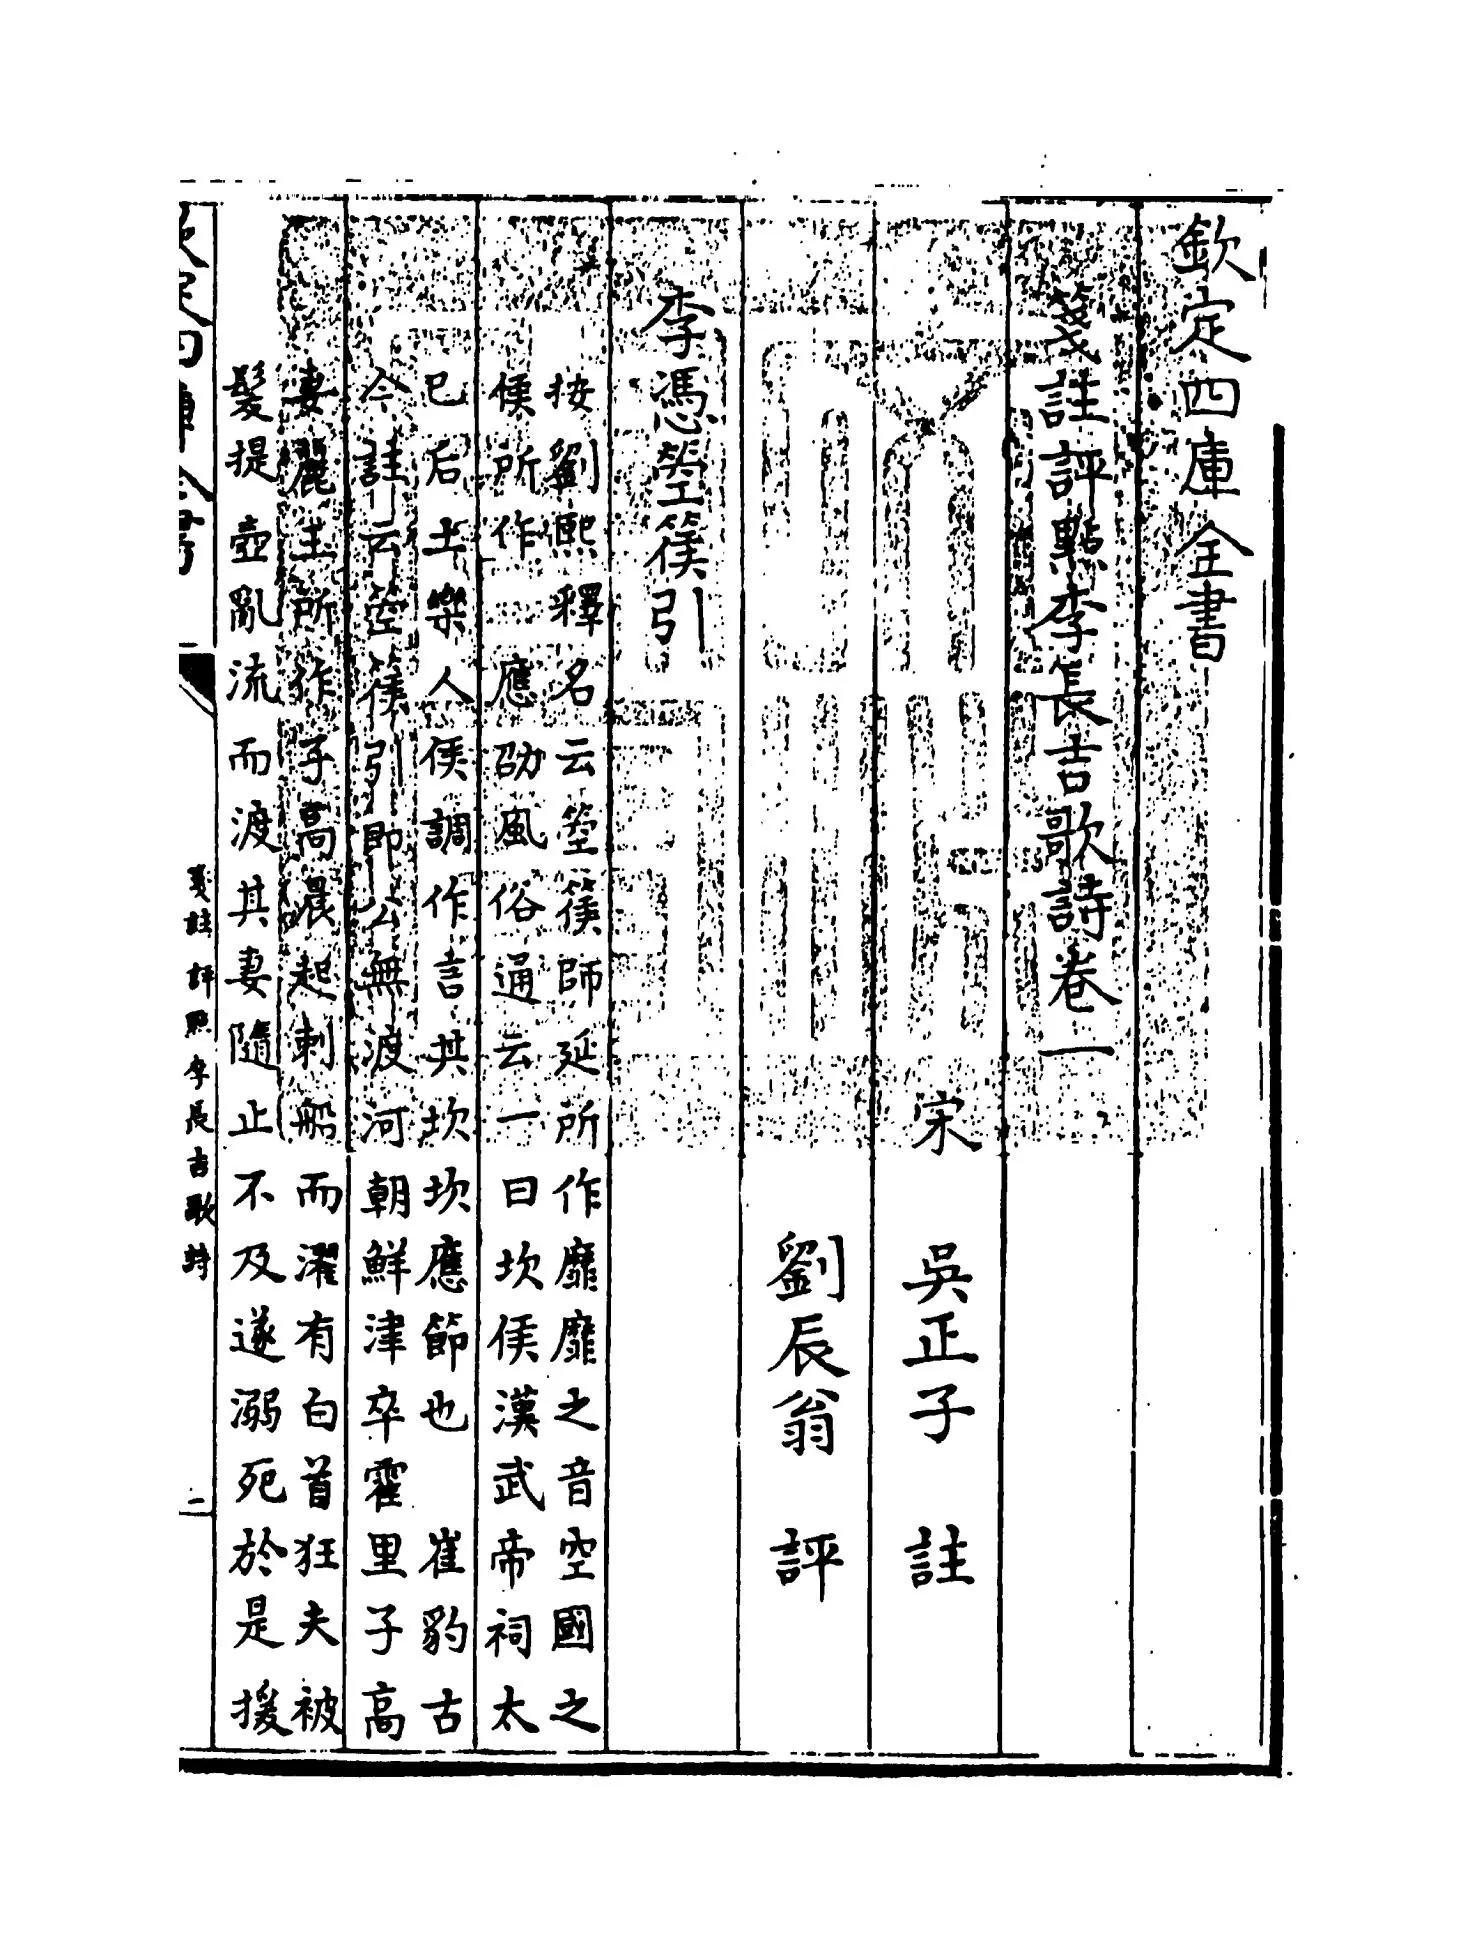 欽定四庫全書
箋註評點李長吉歌詩卷一
宋 吳正子 註
劉辰翁 評
李憑箜篌引
按劉熙釋名云箜篌師延所作靡靡之音空國之
侯所作 應劭風俗通云一曰坎侯漢武帝祠太
已后土樂人侯調作言其坎坎應節也 崔豹古
今註云箜篌引即公無渡河朝鮮津卒霍里子高
妻麗玉所作子高晨起刺船而濯有白首狂夫被
髮提壺亂流而渡其妻隨止不及遂溺死於是援
欽定四庫全書
箋註評點李長吉歌詩
二